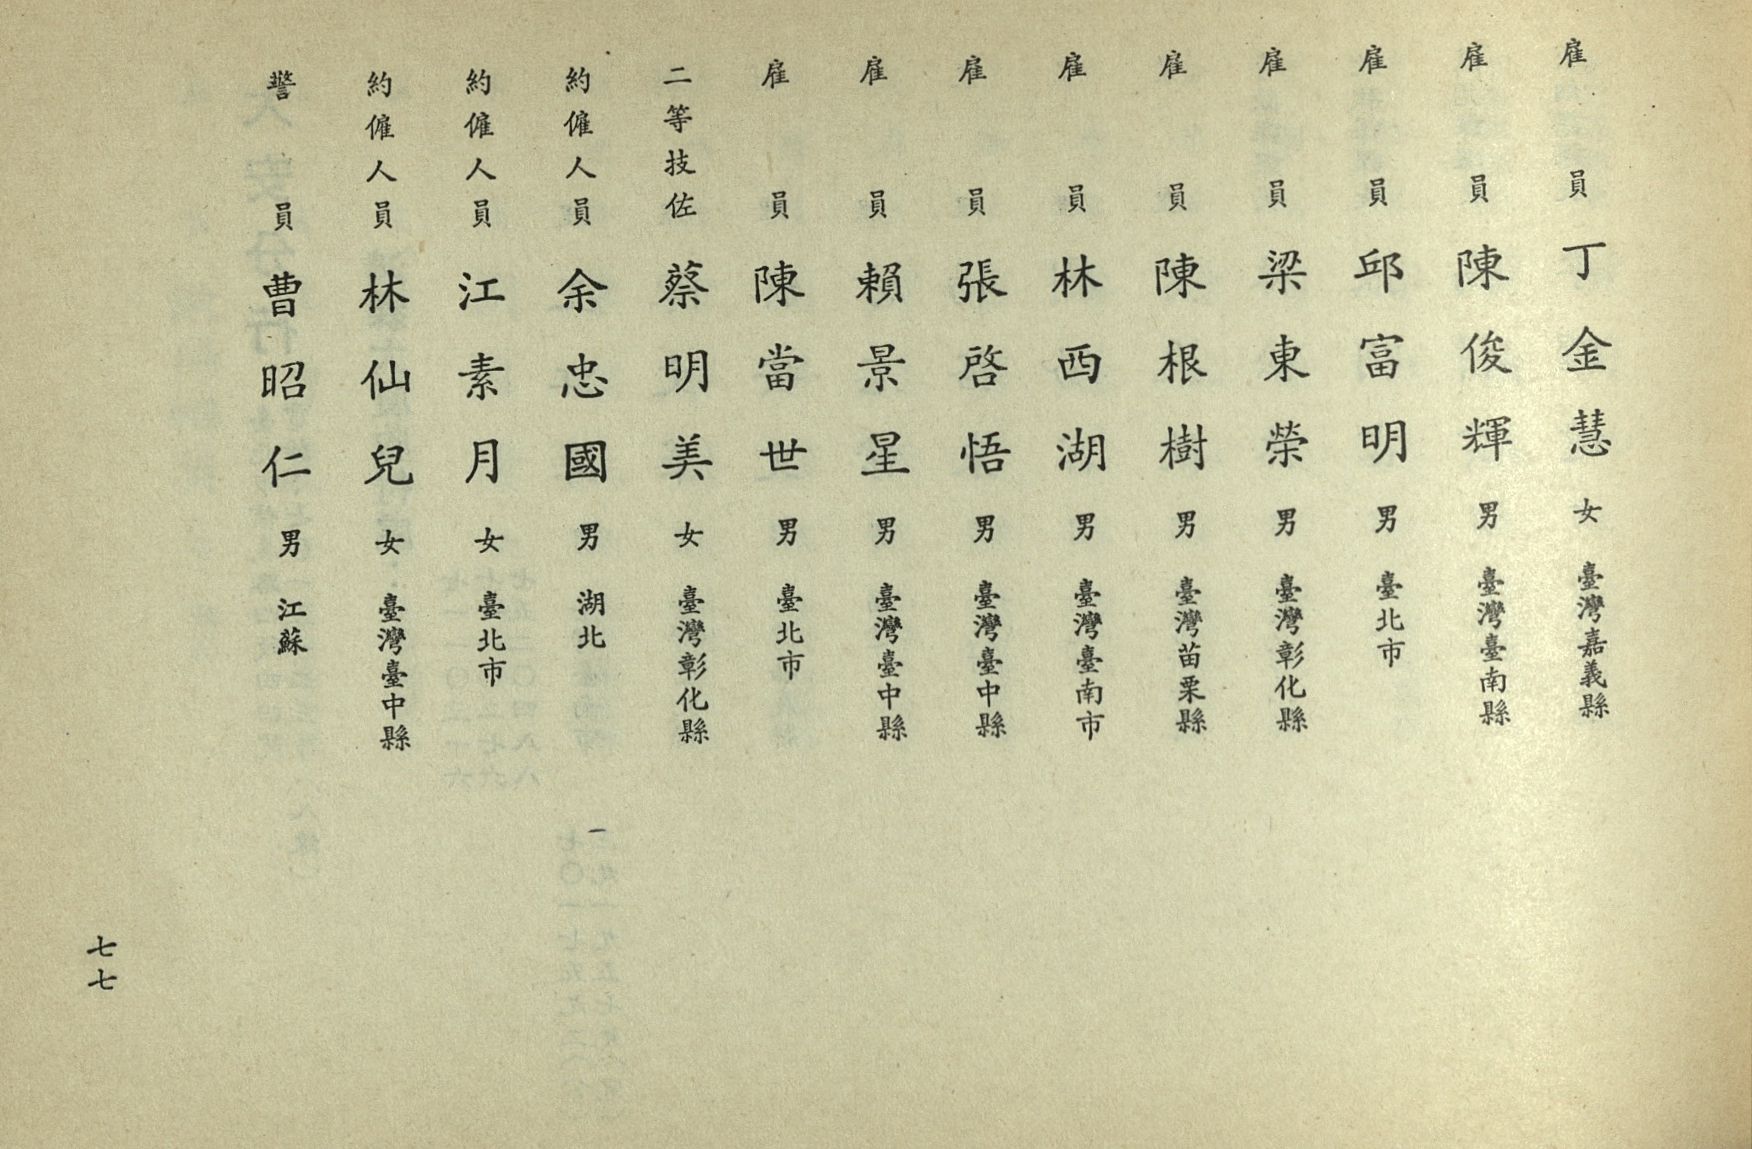 雇員 丁金慧 女 臺灣嘉義縣
雇員 陳俊輝 男 臺灣臺南縣
雇員 邱富明 男 臺北市
雇員 梁東榮 男 臺灣彰化縣
雇員 陳根樹 男 臺灣苗栗縣
雇員 林西湖 男 臺灣臺南市
雇員 張啓悟 男 臺灣臺中縣
雇員 賴景星 男 臺灣臺中縣
雇員 陳當世 男 臺北市
二等技佐 蔡明美 女 臺灣彰化縣
約僱人員 余忠國 男 湖北
約僱人員 江素月 女 臺北市
約僱人員 林仙兒 女 臺灣臺中縣
警員 曹昭仁 男 江蘇
七七